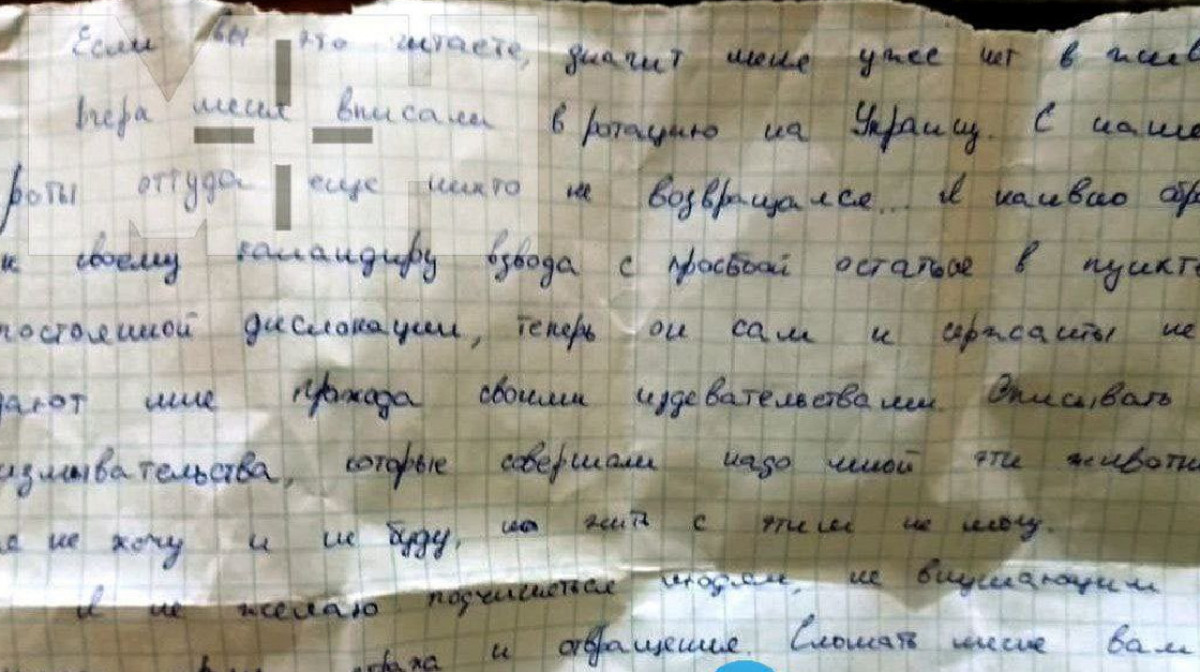 Если вы это читаете, значит меня уже нет в жив
Вчера меня вписали в ротацию на Украину. С наше
роты оттуда еще никто не возвращался... Я наивно обр
к своему командиру взвода с просьбой остаться в пункте
постоянной дислокации, теперь он сам и сержанты не
дают мне прохода своими издевательствами. Описывать
измывательства, которые совершали надо мной эти животн
я не хочу и не буду, но жить с этим не могу.
Я не желаю подчиняться людям, не внушающим
страха и отвращения. Сломать меня вам